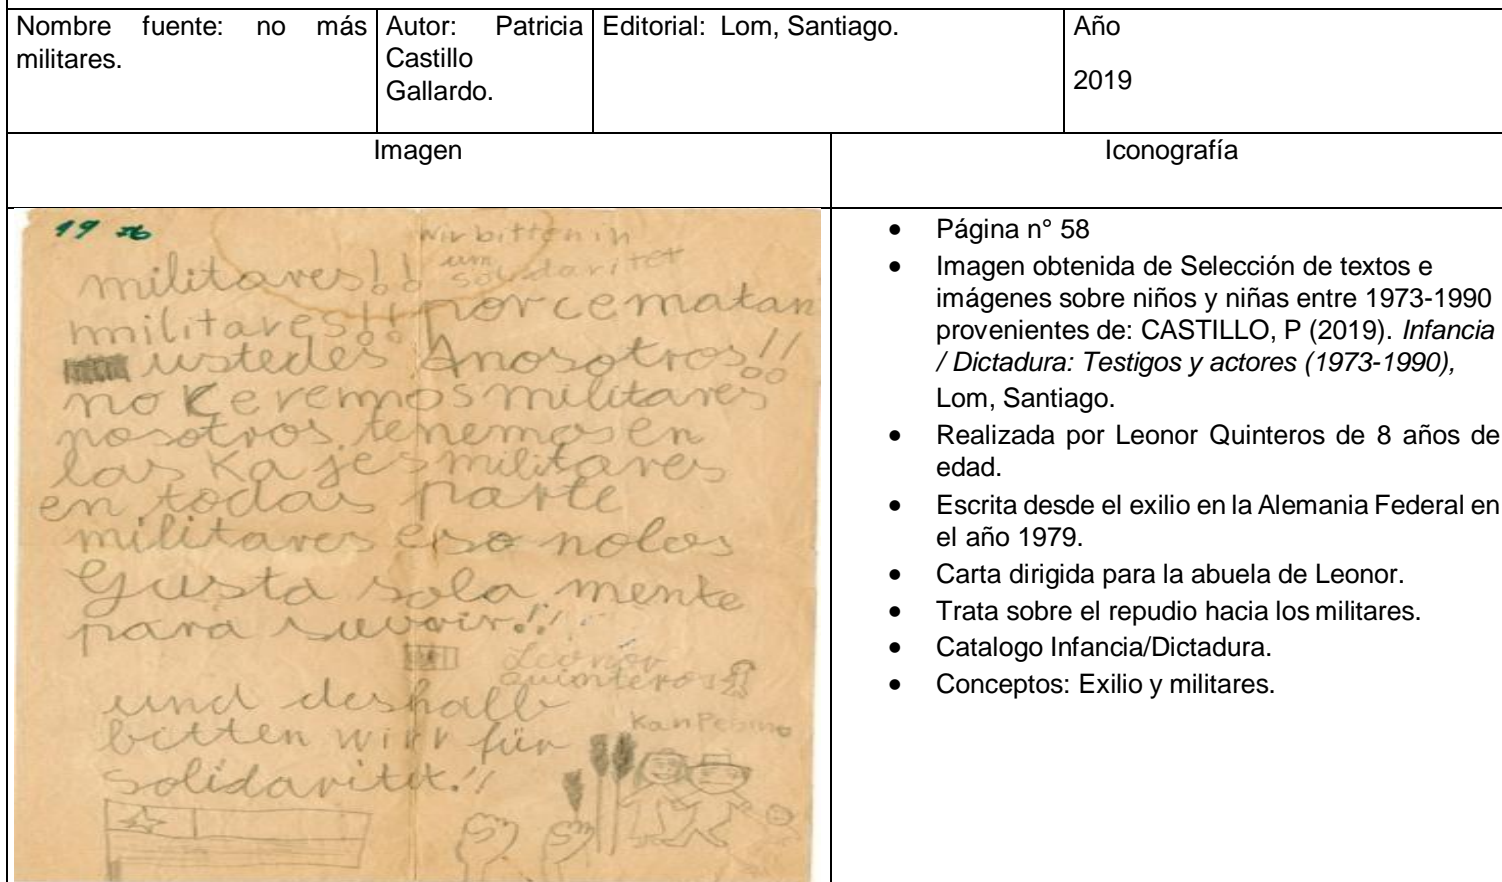 Nombre fuente: no más militares.
Autor: Patricia Castillo Gallardo.
Editorial: Lom, Santiago.
Año
2019
Imagen
Iconografía
19
wir bitten in
um
solidaritet
militares!!
militares!! por ce matan
ustedes Anosotros!!
no Keremos militares
nosotros tenemos en
las Kajes militares
en todas parte
militares eso nolos
Gusta sola mente
para
Leonor
Quinteros
und deshalb
bitten wirr für
solidaritet!!
KanPesino
• Página n° 58
• Imagen obtenida de Selección de textos e
imágenes sobre niños y niñas entre 1973-1990
provenientes de: CASTILLO, P (2019). Infancia
/ Dictadura: Testigos y actores (1973-1990),
Lom, Santiago.
• Realizada por Leonor Quinteros de 8 años de
edad.
• Escrita desde el exilio en la Alemania Federal en
el año 1979.
• Carta dirigida para la abuela de Leonor.
• Trata sobre el repudio hacia los militares.
• Catalogo Infancia/Dictadura.
• Conceptos: Exilio y militares.